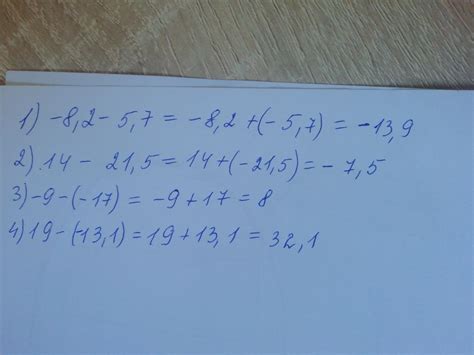 1) -8,2 - 5,7 = -8,2 + (-5,7) = -13,9
2) 14 - 21,5 = 14 + (-21,5) = - 7,5
3) -9 - (-17) = -9 + 17 = 8
4) 19 - (-13,1) = 19 + 13,1 = 32,1